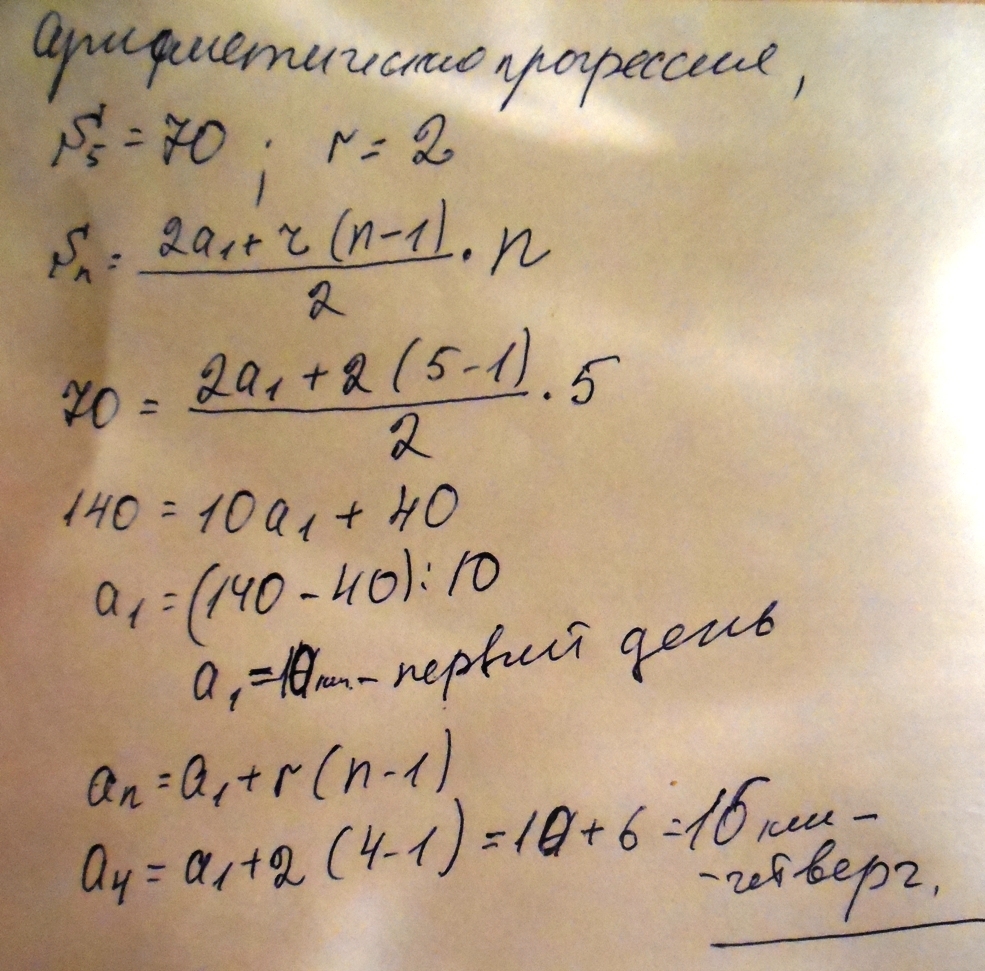 Арифметическая прогрессия,
S₅ = 70 ; r = 2
Sₙ = (2a₁ + r (n-1))/2 · n
70 = (2a₁ + 2 (5-1))/2 · 5
140 = 10a₁ + 40
a₁ = (140 - 40) : 10
a₁ = 10 км. - первый день
aₙ = a₁ + r (n-1)
a₄ = a₁ + 2 (4-1) = 10 + 6 = 16 км -
- четверг.